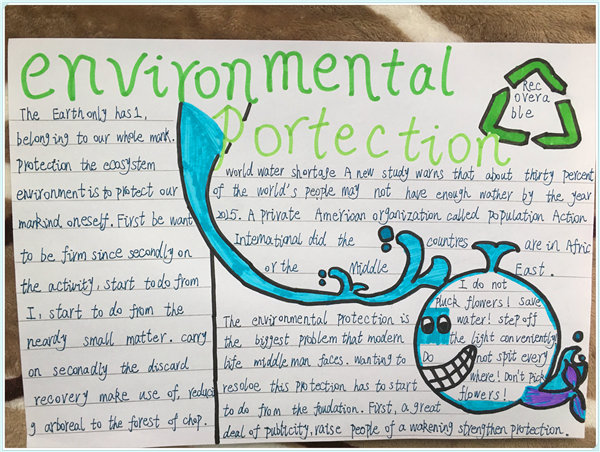 environmental
Portection
Rec
overa
ble
The Earth only has 1,
belonging to our whole mank.
Protection the ecosystem
environment is to protect our
mankind oneself. First be want
to be firm since secondly on
the activity, start to do from
I, start to do from the
neardy small matter. carry
on seconadly the discard
recovery make use of, reduci
g arboreal to the forest of chop.
world water shortage A new study warns that about thirty percent
of the world's people may not have enough wather by the year
2015. A private American organization called population Action
International did the countres are in Afric
or the Middle East.
The environmental protection is
the biggest problem that modern
life middle man faces. wanting to
resoloe this protection has to start
to do from the foudation. First, a great
deal of publicity, raise people of a wakening strengthen protection.
I do not
Pluck flowers! save
water! step off
the light conveniently
Do not spit every
where! Don't pick
flowers!